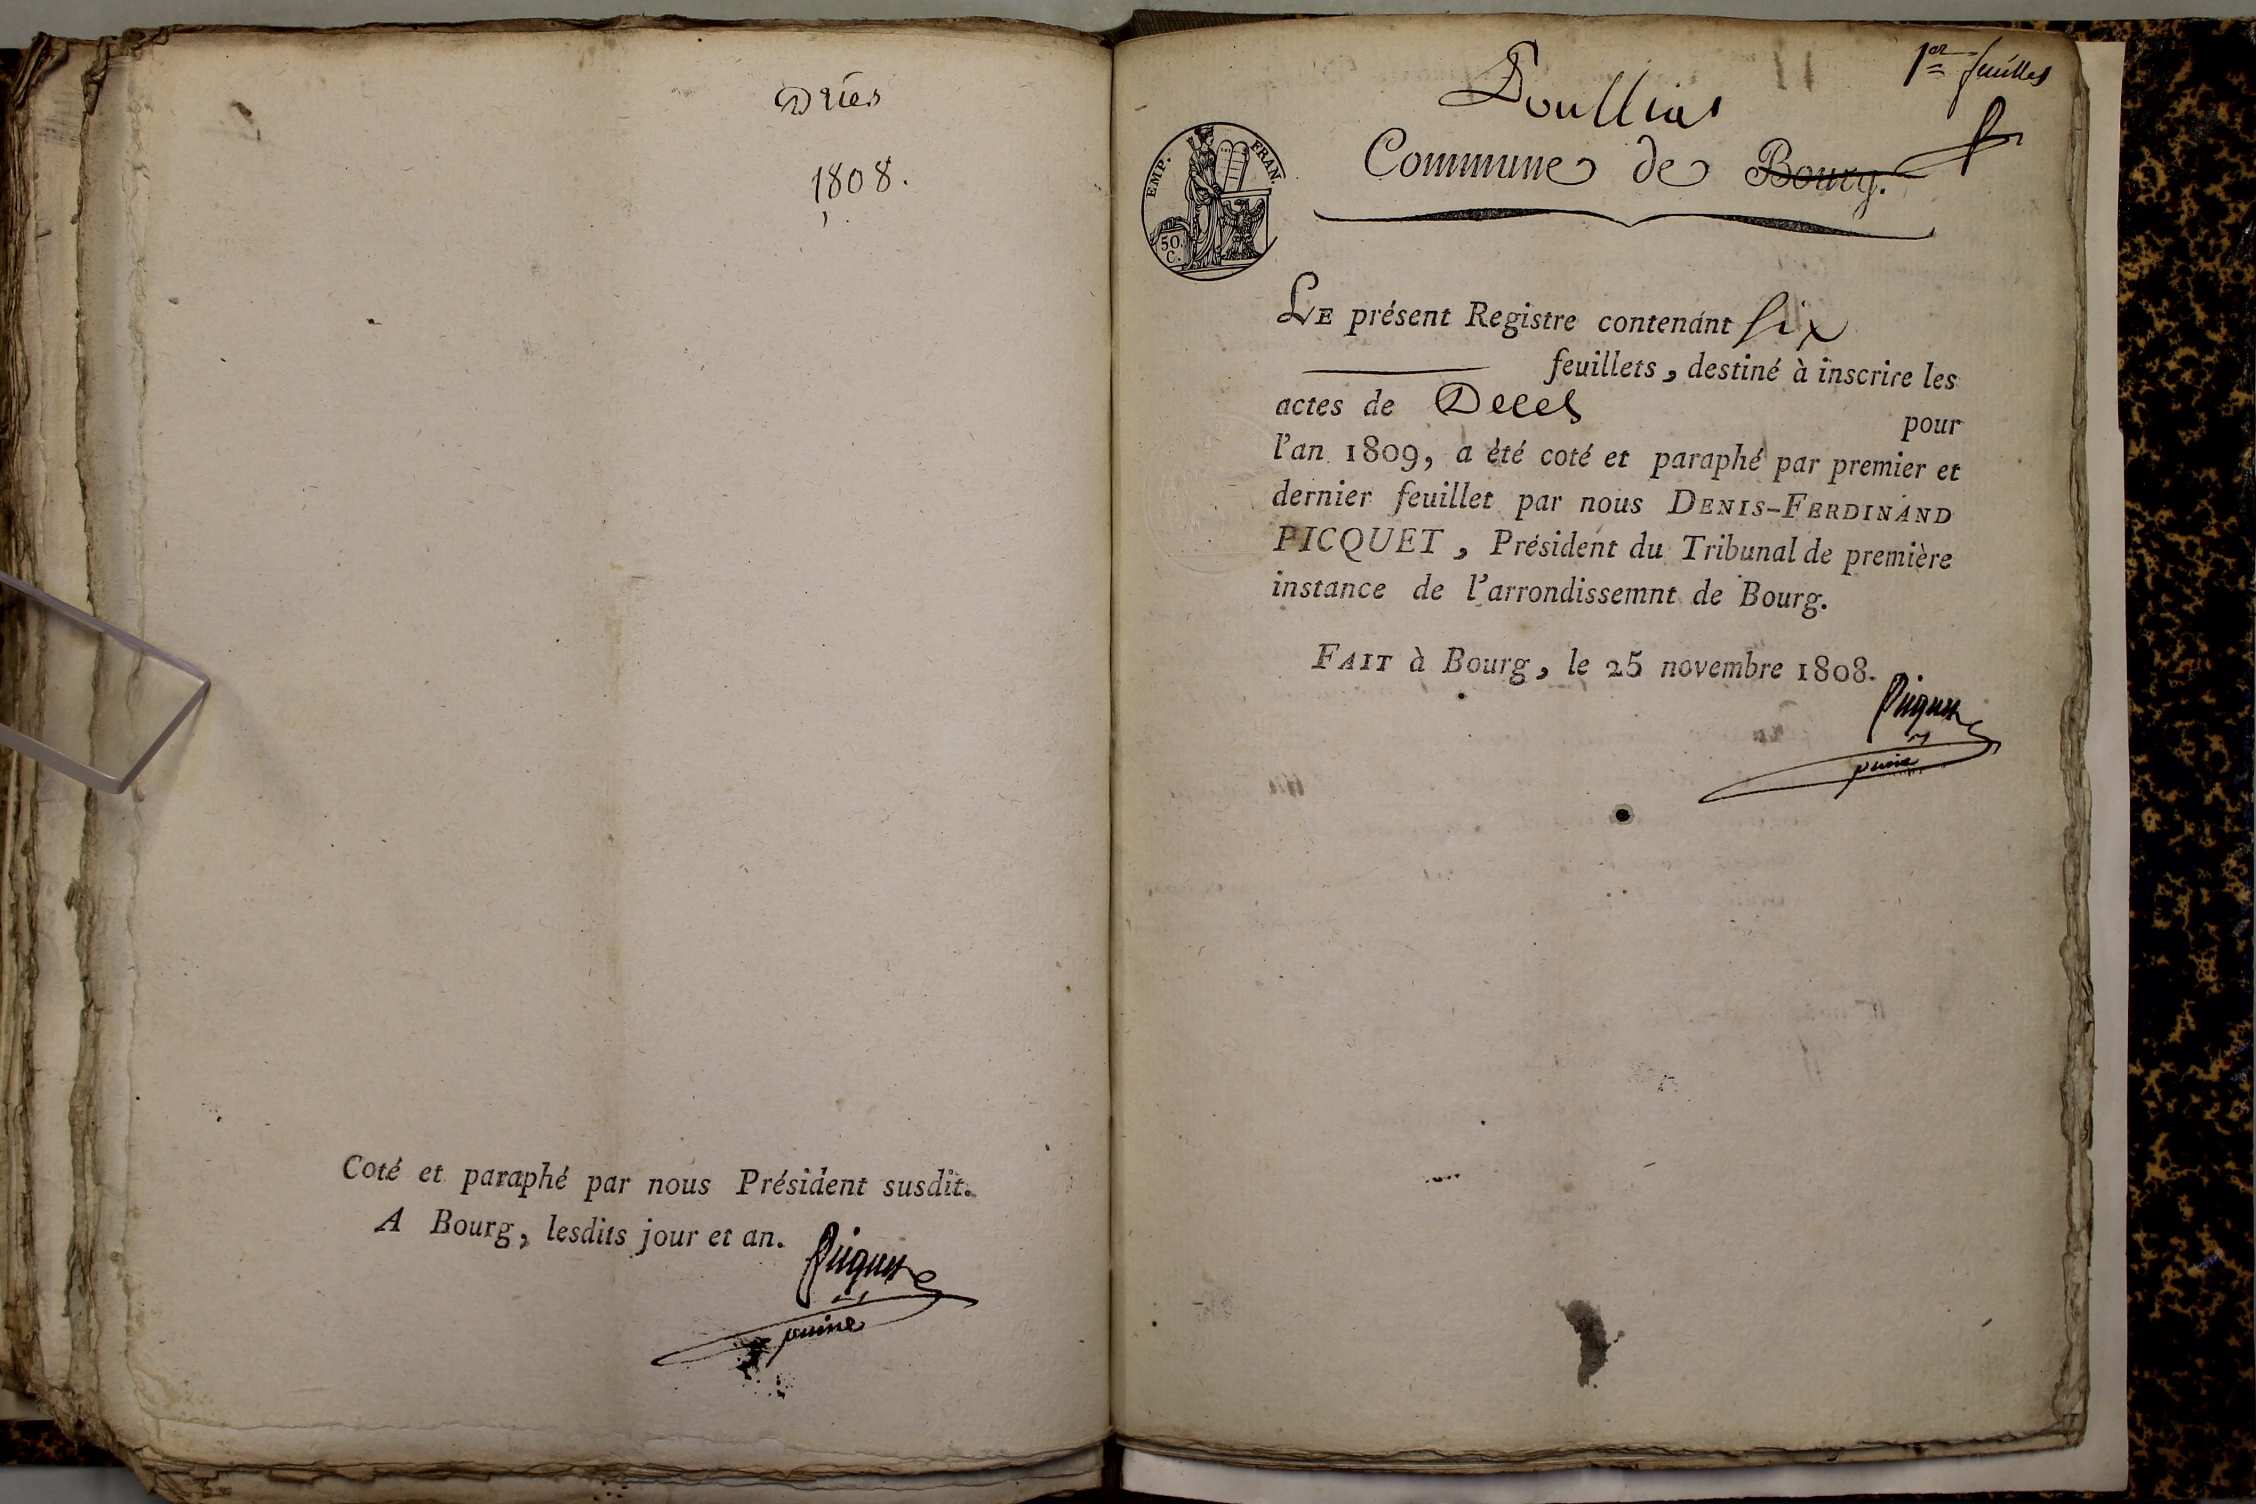 1808.
Coté et paraphé par nous Président susdit.
A Bourg, lesdits jour et an.
Picquet
1er feuillet
Commune de Bourg.
EMP. FRAN.
50
C.
LE présent Registre contenant six
feuillets, destiné à inscrire les
actes de Deces
pour
l'an 1809, a été coté et paraphé par premier et
dernier feuillet par nous DENIS-FERDINAND
PICQUET, Président du Tribunal de première
instance de l'arrondissemnt de Bourg.
FAIT à Bourg, le 25 novembre 1808.
Picquet